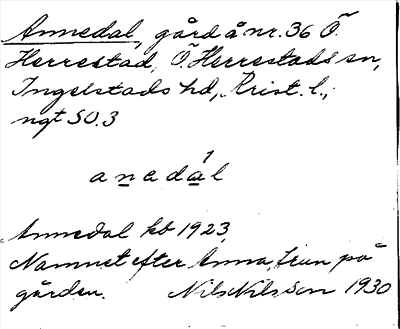 Annedal, gård å nr. 36 Ö.
Herrestad, Ö. Herrestads sn,
Ingelstads hd, Krist. l.,
ngt SO.3
anedál
Annedal kb 1923,
Namnet efter Anna, frun på
gården. Nils Nilsson 1930